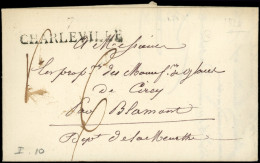 CHARLEVILLE
A Messieurs
Les prop.res des Manuf.re de glaces
de Cirey
Par Blamont
Dep.t de la Meurthe
6
I 10